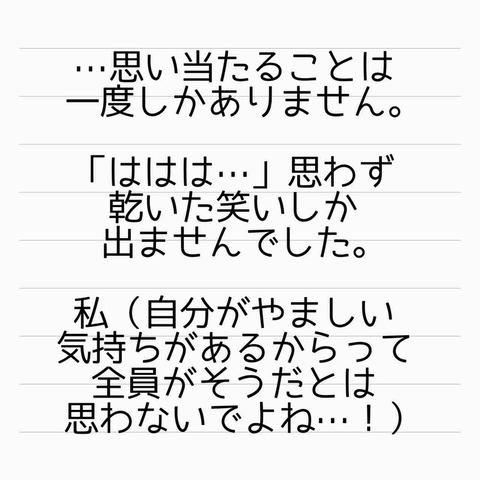 …思い当たることは
一度しかありません。
「ははは…」思わず
乾いた笑いしか
出ませんでした。
私（自分がやましい
気持ちがあるからって
全員がそうだとは
思わないでよね…！）